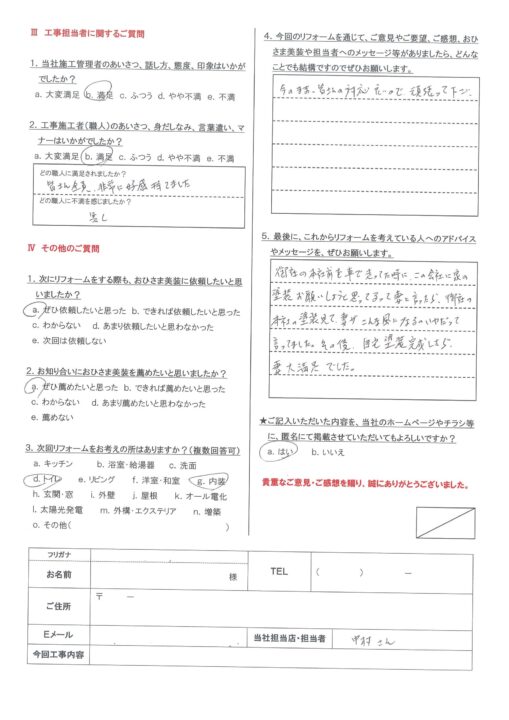 Ⅲ 工事担当者に関するご質問
1. 当社施工管理者のあいさつ、話し方、態度、印象はいかが
でしたか？
a. 大変満足 b. 満足 c. ふつう d. やや不満 e. 不満
2. 工事施工者（職人）のあいさつ、身だしなみ、言葉遣い、マ
ナーはいかがでしたか？
a. 大変満足 b. 満足 c. ふつう d. やや不満 e. 不満
どの職人に満足されましたか？
皆さん全員、非常に好感持てました
どの職人に不満を感じましたか？
無し
Ⅳ その他のご質問
1. 次にリフォームをする際も、おひさま美装に依頼したいと思
いましたか？
a. ぜひ依頼したいと思った b. できれば依頼したいと思った
c. わからない d. あまり依頼したいと思わなかった
e. 次回は依頼しない
2. お知り合いにおひさま美装を薦めたいと思いましたか？
a. ぜひ薦めたいと思った b. できれば薦めたいと思った
c. わからない d. あまり薦めたいと思わなかった
e. 薦めない
3. 次回リフォームをお考えの所はありますか？（複数回答可）
a. キッチン b. 浴室・給湯器 c. 洗面
d. トイレ e. リビング f. 洋室・和室 g. 内装
h. 玄関・窓 i. 外壁 j. 屋根 k. オール電化
l. 太陽光発電 m. 外構・エクステリア n. 増築
o. その他（ ）
4. 今回のリフォームを通じて、ご意見やご要望、ご感想、おひ
さま美装や担当者へのメッセージ等がありましたら、どんな
ことでも結構ですのでぜひお願いします。
今のまま、皆さんの対応 で 頑張って下さい
5. 最後に、これからリフォームを考えている人へのアドバイス
やメッセージを、ぜひお願いします。
御社の本社前を車で走ってた時に、この会社に家の
塗装お願いしようと思ってるって妻に言ったら、御社の
本社の塗装見て、妻が こんな風になるのいやだって
言ってました。その後、自宅塗装完成したら、
妻大満足でした。
★ご記入いただいた内容を、当社のホームページやチラシ等
に、匿名にて掲載させていただいてもよろしいですか？
a. はい b. いいえ
貴重なご意見・ご感想を賜り、誠にありがとうございました。
フリガナ
お名前 様 TEL （ ） －
ご住所 〒 －
Eメール 当社担当店・担当者 中村さん
今回工事内容